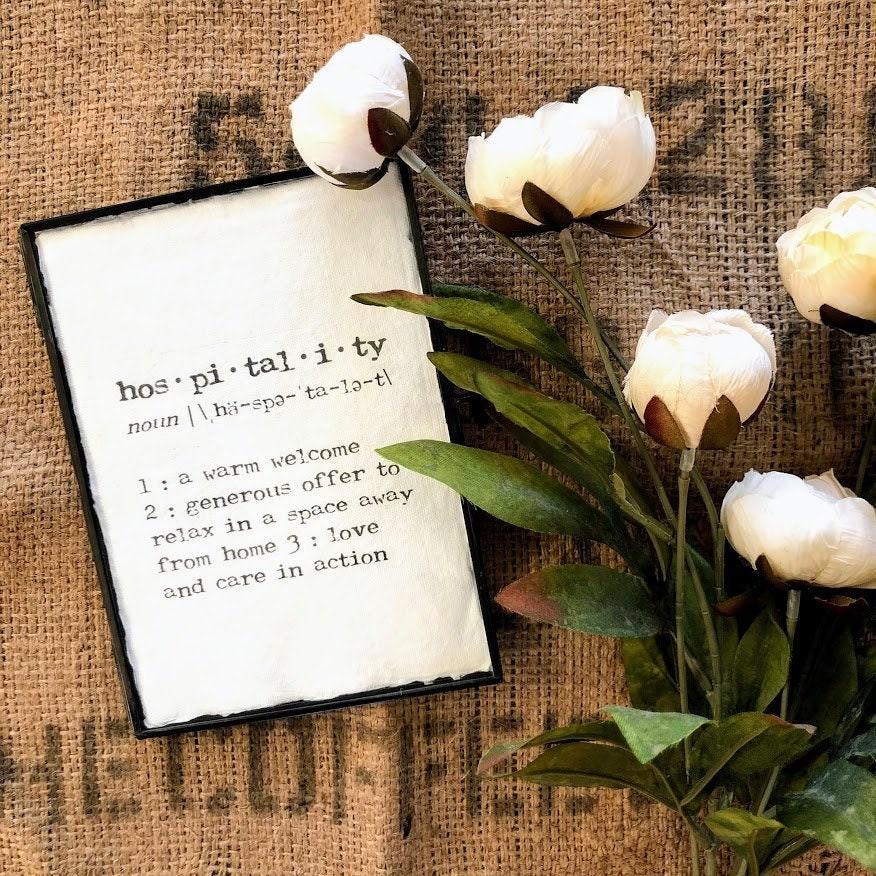 hos·pi·tal·i·ty
noun |\ˌhä-spə-ˈta-lə-t\
1 : a warm welcome
2 : generous offer to
relax in a space away
from home 3 : love
and care in action